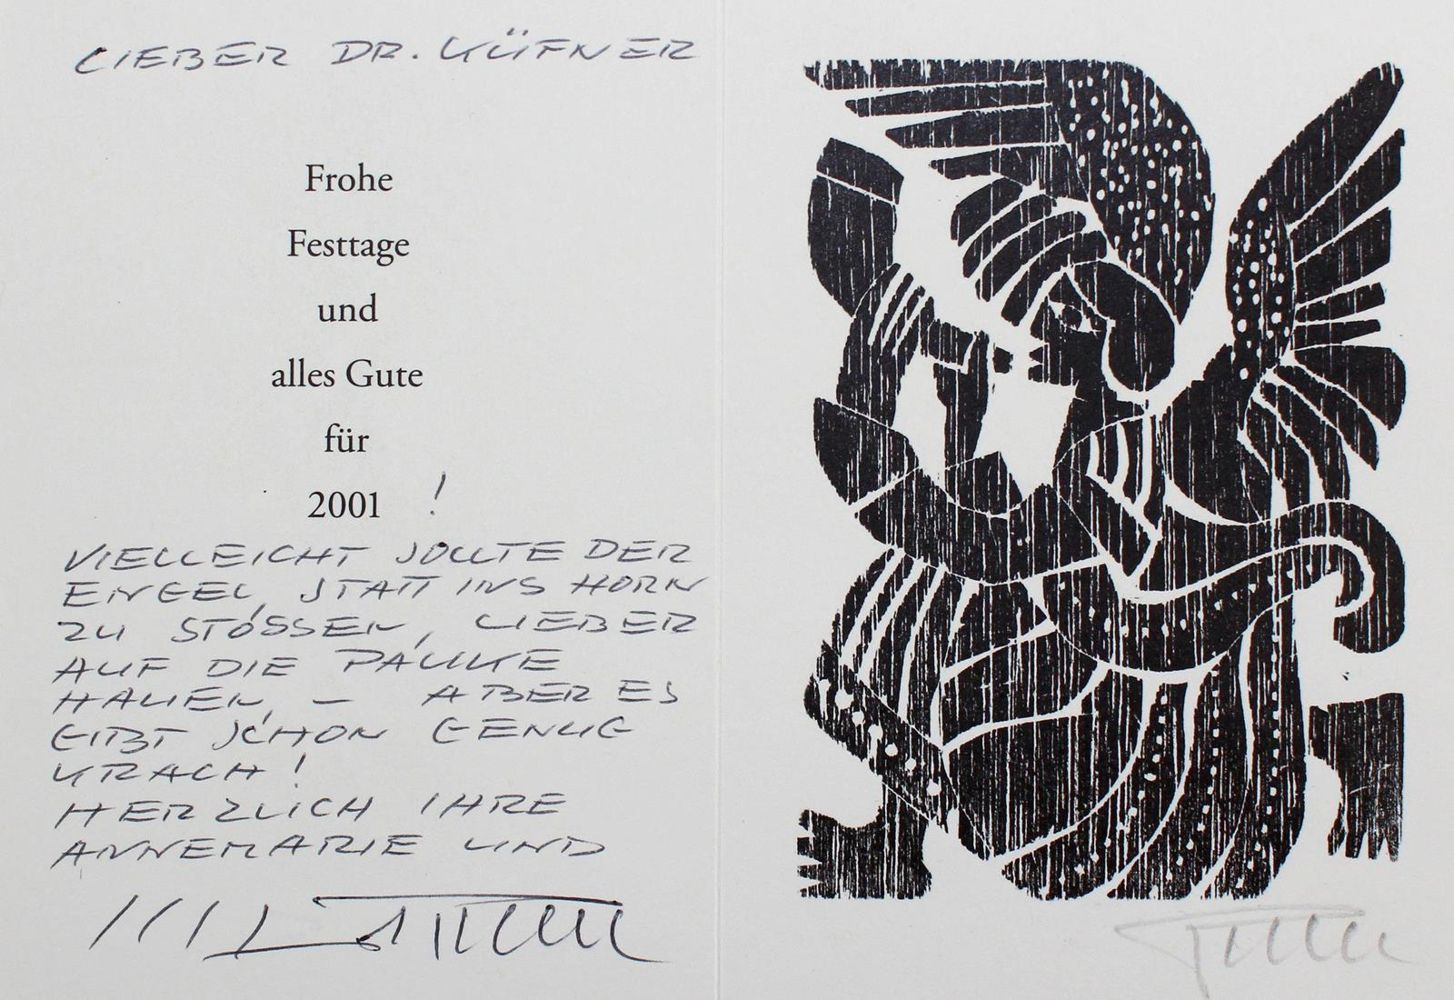 LIEBER DR. KÜFNER
Frohe
Festtage
und
alles Gute
für
2001 !
VIELLEICHT SOLLTE DER
ENGEL, STATT INS HORN
ZU STOSSEN, LIEBER
AUF DIE PAUKE
HAUEN, – ABER ES
GIBT SCHON GENUG
KRACH!
HERZLICH IHRE
ANNEMARIE UND